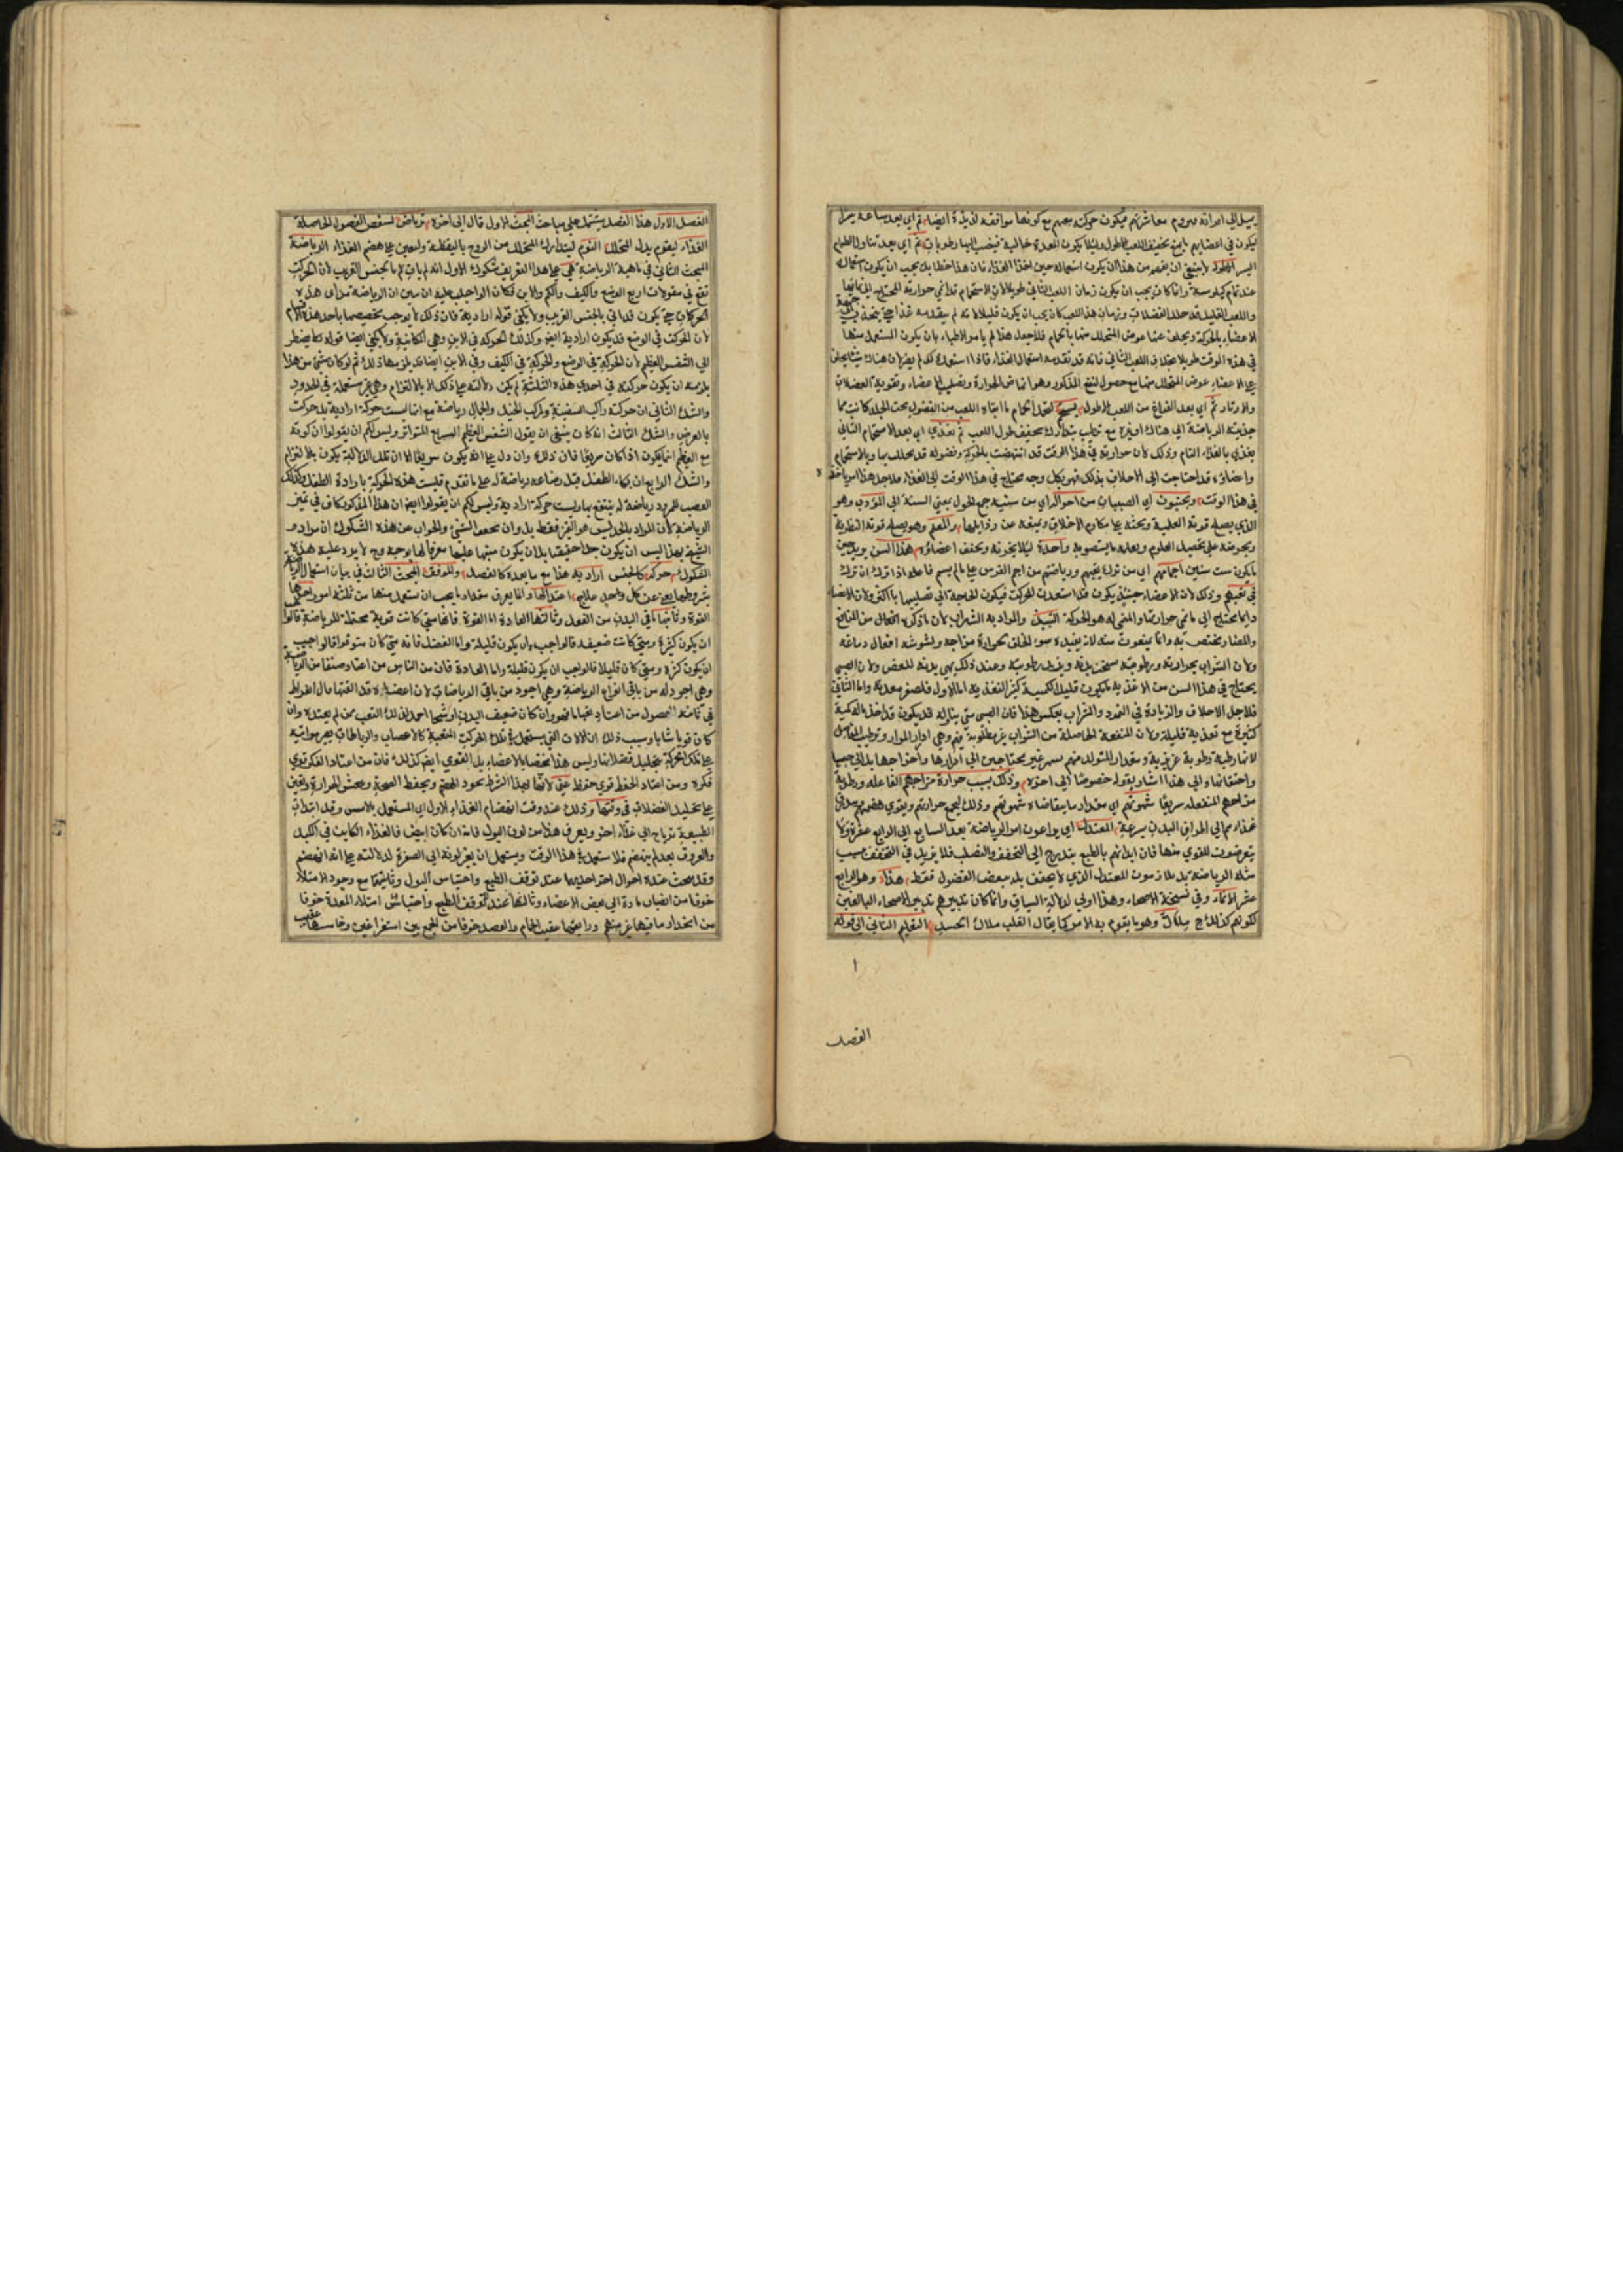 يميل الى امر انه يروم معاشرتهم فيكون حركته معهم مع كونها موافقة لذيذة ايضا ثم اي بعد ساعة
ليكون في اعضائهم تخفيف اللعب الاطول ولئلا يكون المعدة خالية فينصب اليها رطوبات ثم اي بعد تناول الطعام
اليسير لا ينبغي ان يفهم من هذا ان يكون استعماله حين اخذ الغذاء فان هذا خطا بل يجب ان يكون استعماله
عند تمام كيلوسه وانما كان يجب ان يكون زمان اللعب الثاني طويلا لان الاستحمام قد انمى حرارته المحتاج الى
واللعب القليل قد حلل الفضلات وزمان هذا اللعب كان يجب ان يكون قليلا لانه لم يتقدمه غذاء حتى ينجذب الى
الاعضاء بالحركة ويخلف عنها عوض المتحلل منها بالحمام فلاجل هذا لم يامر الاطباء بان يكون المستعمل منها
في هذا الوقت طويلا بخلاف اللعب الثاني فانه قد تقدمه استعمال الغذاء فاذا استعمل لم يضر لان هناك شيئا يخلف
على الاعضاء عوض المتحلل منها مع حصول النفع المذكور وهو انهاض الحرارة وتصليب الاعضاء وتقوية العضلات
والاوتار ثم اي بعد الفراغ من اللعب الاطول يستحم لتحلل الحمام ما ابقاه اللعب من الفضول تحت الجلد كانت مما
جذبته الرياضة الى هناك وغيره مع ترطيب يتدارك تجفيف طول اللعب ثم يغذى اي بعد الاستحمام الثاني
يغذى بالغذاء التام وذلك لان حرارته في هذا الوقت قد انتهضت بالحركة وفضوله قد تحللت بها وبالاستحمام
واعضاؤه قد احتاجت الى الاخلاف بذلك فهو بكل وجه محتاج في هذا الوقت الى الغذاء فلاجل هذا امر باخذه
في هذا الوقت ويجنبون اي الصبيان من احوال اي من سنيه جمع الحول بمعنى السنة الى المؤدب وهو
الذي يصلح قوته العملية ويحثه على مكارم الاخلاق ويمنعه عن رذائلها والمعلم وهو يصلح قوته النظرية
ويحرضه على تحصيل العلوم ويعلمه ما يستصوبه واحدة لئلا يخونه وتجف اعضاؤه هذا السن يريد حين
ما يكون ست سنين اجمامهم اي من ترك تعبهم ورياضتهم من اجم الفرس على ما لم يسم فاعله اذا ترك ان ترك
في تعبهم وذلك لان الاعضاء حينئذ يكون قد استعدت للحركة فيكون الحاجة الى تصليبها بها اكثر ولان الاعضاء
دائما يحتاج الى ما ينمي حرارتها والمنمي له هو الحركة النبيذ والمراد به الشراب لان ما ذكره افعال من المنافع
والمضار يختص به وانما يمنعون منه لانه يفيده سوء الخلق بحرارة مزاجه ويشوشه افعال دماغه
ولان الشراب بحرارته ورطوبته يسخن بدنه ويزيد رطوبته وعند ذلك يهيئ بدنه للعفن ولان الصبي
يحتاج في هذا السن من الاغذية ما يكون قليل الكمية كثير التغذية اما الاول فلصغر معدته واما الثاني
فلاجل الاخلاف والزيادة في النمو والشراب بعكس هذا فان الصبي متى يناله قد يكون قد اخذ ماله كمية
كثيرة مع تغذية قليلة ولان المنفعة الحاصلة من الشراب غير مطلوبة فيهم وهي ادرار المرار وترطيب المفاصل
لانها رطبة رطوبة غريزية ومقدار المتولد منهم يسير غير محتاجين الى ادرارها واخراجها بل الى حبسها
واحتقانها والى هذا اشار بقوله خصوصا الى اخره وذلك بسبب حرارة مزاجهم الفاعلة ورطوبة
مزاجهم المنفعلة سريعا شهوتهم اي مقدار ما يتقاضاه شهوتهم وذلك ليجمع حرارتهم ويقوي هضمهم
غذاءهم الى اطراف البدن بسرعة المعتدل اي يراعون امر الرياضة بعد السابع الى الرابع عشر
يتعرضون للقوي منها فان ابدانهم بالطبع يتدرج الى التجفف والتصلب فلا يزيد في التجفف بسبب
مثله الرياضة بل يلازمون المعتدل الذي لا يجفف بل يعفن الفضول فقط هذا وهو الرابع
عشر الاتمار وفي نسخة الاصحاء وهذا اولى لدلالة السياق وانما كان تدبيرهم تدبير الاصحاء البالغين
لكونهم كذلك ملاك وهو ما يقوم به الامر كما يقال القلب ملاك الجسد التعليم الثاني الى قوله
الفصل
الفصل الاول هذا الفصل يشتمل على مباحث البحث الاول قال الى اخره الفصول الحاصلة
الغذاء ليقوم بدل المتحلل النوم ليتدارك المتحلل من الروح باليقظة وليعين على هضم الغذاء الرياضة
البحث الثاني في ماهية الرياضة هي على هذا التعريف شكوك الاول انه لم يات بالجنس القريب لان الحركة
تقع في مقولات اربع الوضع والكيف والكم والاين فكان الواجب عليه ان يبين ان الرياضة من اي هذه
الحركات حتى يكون قد اتى بالجنس القريب ولا يكفي قوله ارادية فان ذلك لا يوجب تخصيصها باحد هذه الاقسام
لان الحركة في الوضع قد يكون ارادية ايضا وكذلك الحركة في الاين وهي المكانية ولا يكفي ايضا قوله يضطر
الى التنفس العظيم لان الحركة في الوضع والحركة في الكيف وفي الاين ايضا قد يلزمها ذلك ثم لو كان شيء من هذا
يلزمه ان يكون حركته في احدى هذه الثلاثة لم يكن دلالته على ذلك الا بالالتزام وهي غير مستعملة في الحدود
والشك الثاني ان حركة راكب السفينة وراكب الخيل والجمال رياضة مع انها ليست حركة ارادية بل حركة
بالعرض والشك الثالث انه كان ينبغي ان يقول التنفس العظيم السريع المتواتر وليس لكم ان يقولوا ان كونه
مع العظيم انما يكون اذا كان سريعا فان ذلك وان دل على انه يكون سريعا الا ان تلك الدلالة يكون بالالتزام
والشك الرابع ان بكاء الطفل قبل رضاعه رياضة له على ما تقدم وليست هذه الحركة بارادة الطفل وكذلك
العصب المرود رياضة له ينتفع بها وليست حركة ارادية وليس لكم ان يقولوا ايضا ان هذا المذكور كاف في تميز
الرياضة لان المراد بالحد ليس هو التميز فقط بل وان تحقق الشيء والجواب عن هذه الشكوك ان مراد
الشيخ بهذا ليس ان يكون حدا حقيقيا بل ان يكون منبها عليها معرفا لها بوجه وح لا يرد عليه هذه
الشكوك حركة كالجنس ارادية هذا مع ما بعده كالفصل والموفق البحث الثالث في بيان استعمال الرياضة
بشروطها يغني عن كل واحد علاج اعتدالها وانما يعرف مقدار ما يجب ان يستعمل منها من ثلاثة امور احدها
القوة وثانيها ما في البدن من الفضل وثالثها العادة اما القوة فانها متى كانت قوية محتملة للرياضة فالواجب
ان يكون كثيرة ومتى كانت ضعيفة فالواجب ان يكون قليلة واما الفضل فانه متى كان متوفرا فالواجب
ان يكون كثرة ومتى كان قليلا فالواجب ان يكون قليلة واما العادة فان من الناس من اعتاد صنفا من الرياضة
وهي اجود له من باقي انواع الرياضة وهي اجود من باقي الرياضات لان اعضاءه قد الفتها قال ابقراط
في ثانية الفصول من اعتاد تعبا ما فهو وان كان ضعيف البدن او شيخا احمل لذلك التعب ممن لم يعتده وان
كان قويا شابا وسبب ذلك ان الالات التي يستعمل في تلك الحركة المتعبة كالاعصاب والرباطات يصير مواتية
على تلك الحركة بتحليل فضلاتها وليس هذا مختصا بالاعضاء بل القوى ايضا كذلك فان من اعتاد الفكر قوي
فكره ومن اعتاد الحفظ قوي حفظه لانها بهذا الشرط يجود الهضم ويحفظ الصحة وينعش الحرارة ويعين
على تحليل الفضلات في وقتها وذلك عند وقت انهضام الغذاء الاول اي المستعمل بالامس وقد ابتدات
الطبيعة يرتاح الى غذاء اخر ويعرف هذا من لون البول فانه ان كان ابيض فالغذاء الكائن في الكبد
والعروق بعد لم ينهضم فلا يستعمل في هذا الوقت ويستعمل ان يغير لونه الى الصفرة لدلالته على انه انهضم
وقد بحث عنده احوال اخر احديها عند توقف الطبع واحتباس البول وثانيتها مع وجود الامتلاء
خوفا من انصباب مادة الى بعض الاعضاء وثالثها عند توقف الطبع واحتباس امتلاء المعدة خوفا
من انحدار ما فيها غير منهضم ورابعتها عقيب الحمام والفصد خوفا من الجمع بين استفراغين وخامستها عقيب